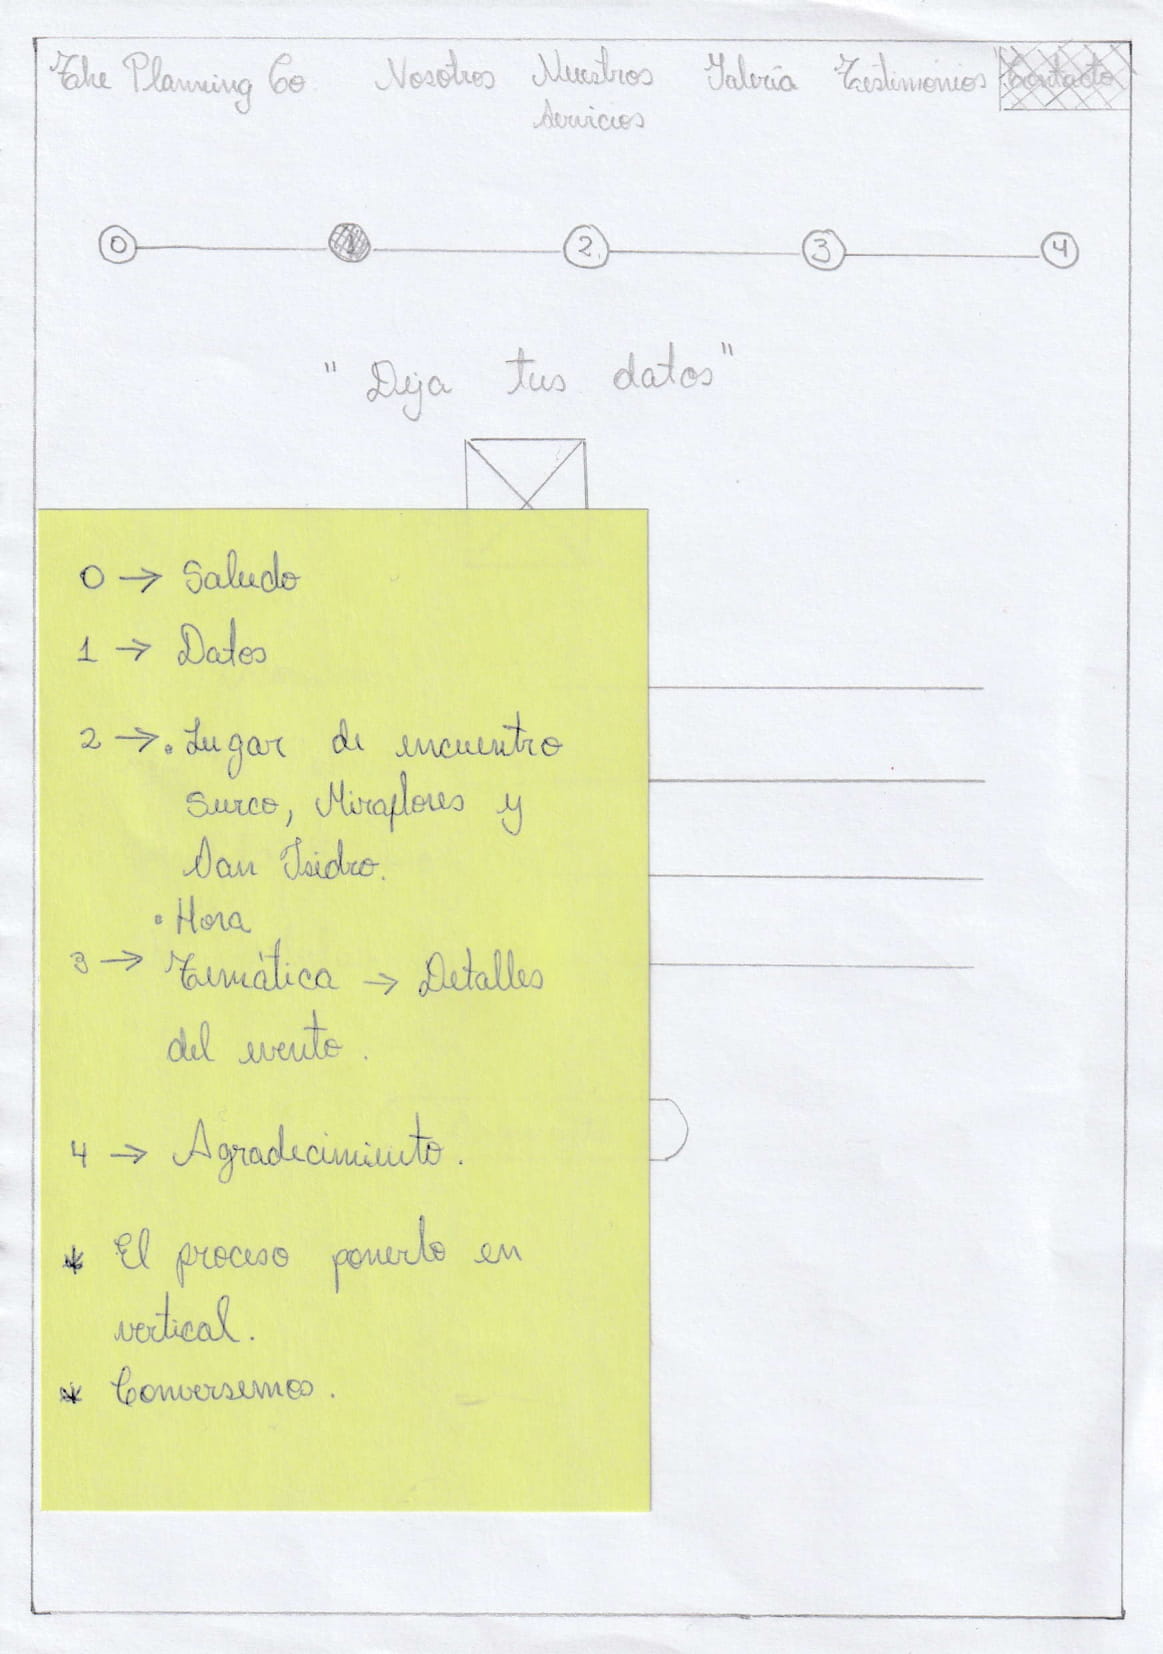 The Planning Co Nosotros Nuestros Galería Testimonios Contacto
Servicios
0 1 2 3 4
" Deja tus datos "
0 → Saludo
1 → Datos
2 → • Lugar de encuentro
Surco, Miraflores y
San Isidro.
• Hora
3 → Temática → Detalles
del evento.
4 → Agradecimiento.
* El proceso ponerlo en
vertical.
* Conversemos.